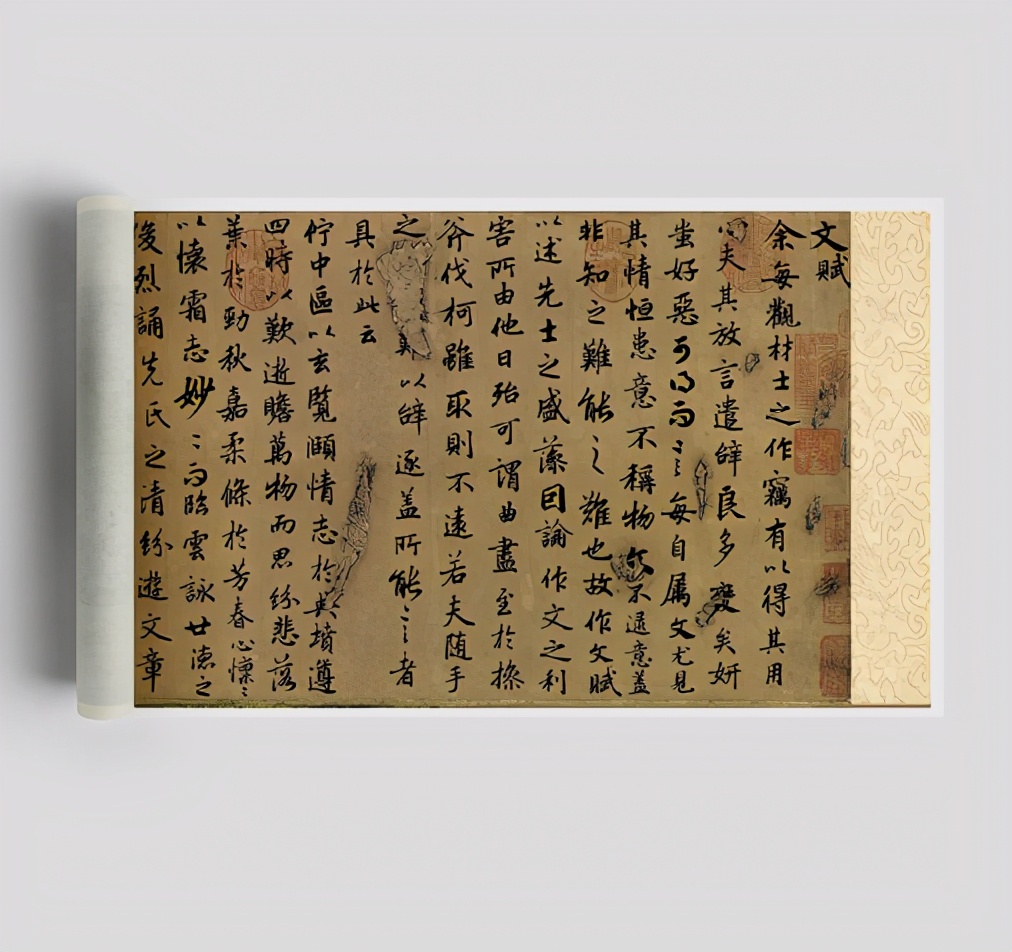 文賦
余每觀材士之作竊有以得其用
心夫其放言遣辭良多變矣妍
蚩好惡可得而言每自屬文尤見
其情恒患意不稱物文不逮意蓋
非知之難能之難也故作文賦
以述先士之盛藻因論作文之利
害所由他日殆可謂曲盡至於操
斧伐柯雖取則不遠若夫随手
之難以辭逐蓋所能言者
具於此云
佇中區以玄覽頤情志於典墳遵
四時以歎逝瞻萬物而思紛悲落
葉於勁秋嘉柔條於芳春心懍〻
以懷霜志妙〻而臨雲詠世德之
俊烈誦先民之清紛遊文章